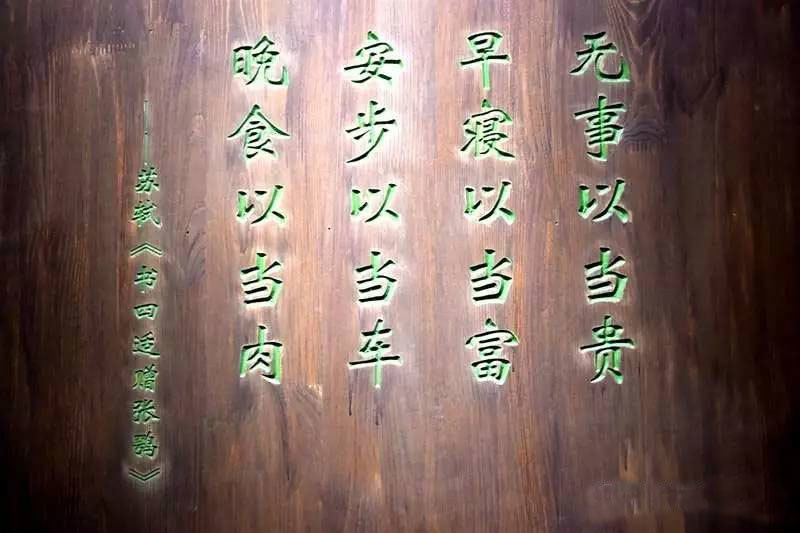 无事以当贵
早寝以当富
安步以当车
晚食以当肉
——苏轼《书四适赠张鹗》